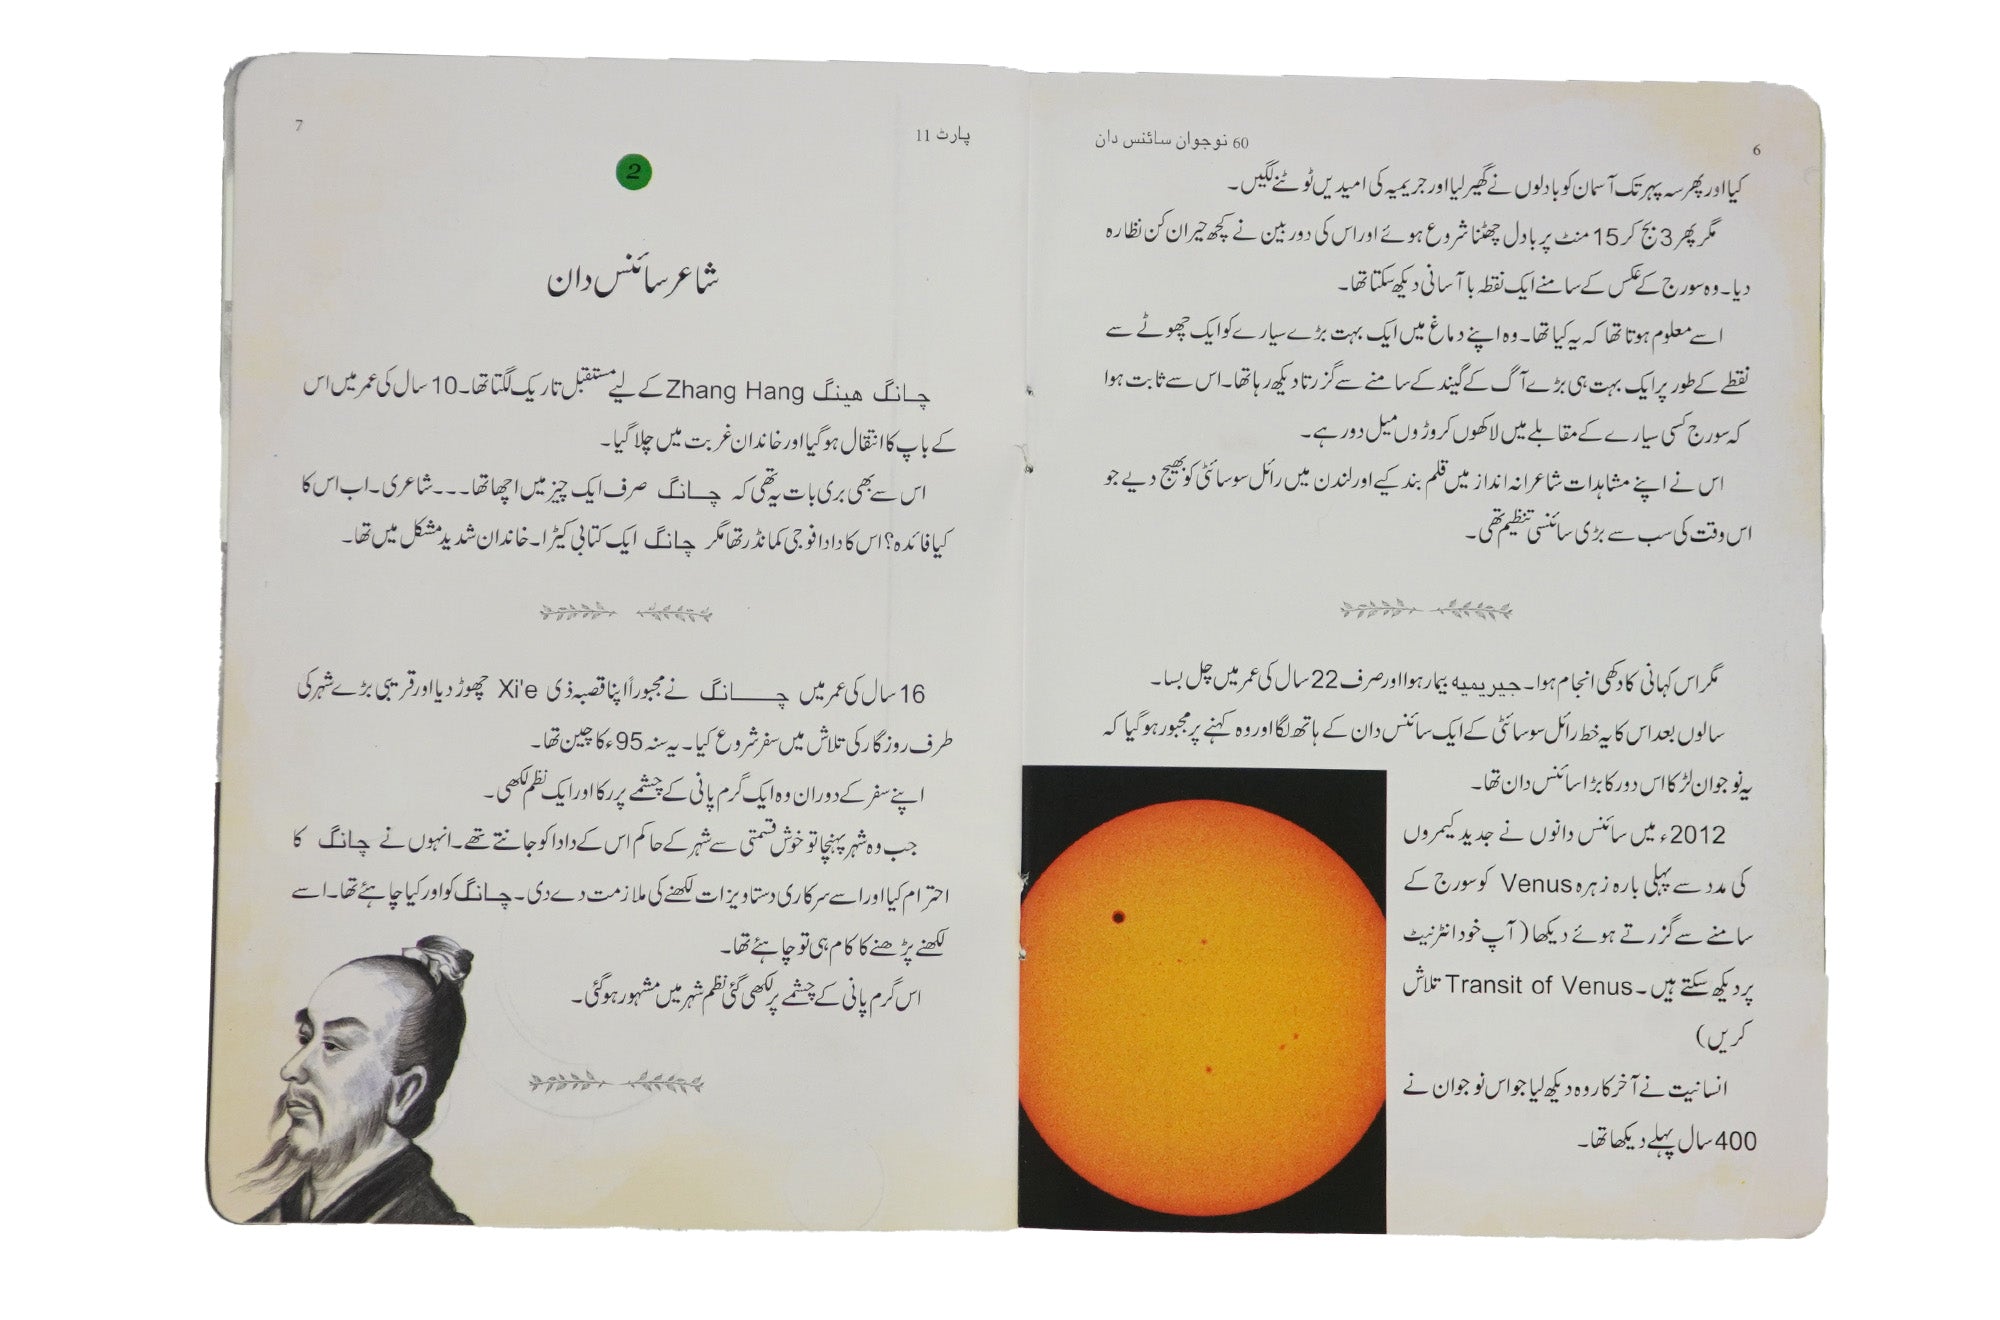 6
60 نوجوان سائنس دان
کیا اور پھر سہ پہر تک آسمان کو بادلوں نے گھیر لیا اور جریمیہ کی امیدیں ٹوٹنے لگیں۔
مگر پھر 3 بج کر 15 منٹ پر بادل چھٹنا شروع ہوئے اور اس کی دوربین نے کچھ حیران کن نظارہ
دیا۔ وہ سورج کے عکس کے سامنے ایک نقطہ با آسانی دیکھ سکتا تھا۔
اسے معلوم ہوتا تھا کہ یہ کیا تھا۔ وہ اپنے دماغ میں ایک بہت بڑے سیارے کو ایک چھوٹے سے
نقطے کے طور پر ایک بہت ہی بڑے آگ کے گیند کے سامنے سے گزرتا دیکھ رہا تھا۔ اس سے ثابت ہوا
کہ سورج کسی سیارے کے مقابلے میں لاکھوں کروڑوں میل دور ہے۔
اس نے اپنے مشاہدات شاعرانہ انداز میں قلم بند کیے اور لندن میں رائل سوسائٹی کو بھیج دیے جو
اس وقت کی سب سے بڑی سائنسی تنظیم تھی۔
مگر اس کہانی کا دکھی انجام ہوا۔ جیریمیہ بیمار ہوا اور صرف 22 سال کی عمر میں چل بسا۔
سالوں بعد اس کا یہ خط رائل سوسائٹی کے ایک سائنس دان کے ہاتھ لگا اور وہ کہنے پر مجبور ہو گیا کہ
یہ نوجوان لڑکا اس دور کا بڑا سائنس دان تھا۔
2012ء میں سائنس دانوں نے جدید کیمروں
کی مدد سے پہلی بارہ زہرہ Venus کو سورج کے
سامنے سے گزرتے ہوئے دیکھا (آپ خود انٹرنیٹ
پر دیکھ سکتے ہیں۔ Transit of Venus تلاش
کریں)
انسانیت نے آخر کار وہ دیکھ لیا جو اس نوجوان نے
400 سال پہلے دیکھا تھا۔
پارٹ 11
7
2
شاعر سائنس دان
چانگ ھینگ Zhang Hang کے لیے مستقبل تاریک لگتا تھا۔ 10 سال کی عمر میں اس
کے باپ کا انتقال ہو گیا اور خاندان غربت میں چلا گیا۔
اس سے بھی بری بات یہ تھی کہ چانگ صرف ایک چیز میں اچھا تھا۔۔۔شاعری۔ اب اس کا
کیا فائدہ؟ اس کا دادا فوجی کمانڈر تھا مگر چانگ ایک کتابی کیڑا۔ خاندان شدید مشکل میں تھا۔
16 سال کی عمر میں چانگ نے مجبوراً اپنا قصبہ ذی Xi'e چھوڑ دیا اور قریبی بڑے شہر کی
طرف روزگار کی تلاش میں سفر شروع کیا۔ یہ سنہ 95ء کا چین تھا۔
اپنے سفر کے دوران وہ ایک گرم پانی کے چشمے پر رکا اور ایک نظم لکھی۔
جب وہ شہر پہنچا تو خوش قسمتی سے شہر کے حاکم اس کے دادا کو جانتے تھے۔ انہوں نے چانگ کا
احترام کیا اور اسے سرکاری دستاویزات لکھنے کی ملازمت دے دی۔ چانگ کو اور کیا چاہئے تھا۔ اسے
لکھنے پڑھنے کا کام ہی تو چاہئے تھا۔
اس گرم پانی کے چشمے پر لکھی گئی نظم شہر میں مشہور ہو گئی۔